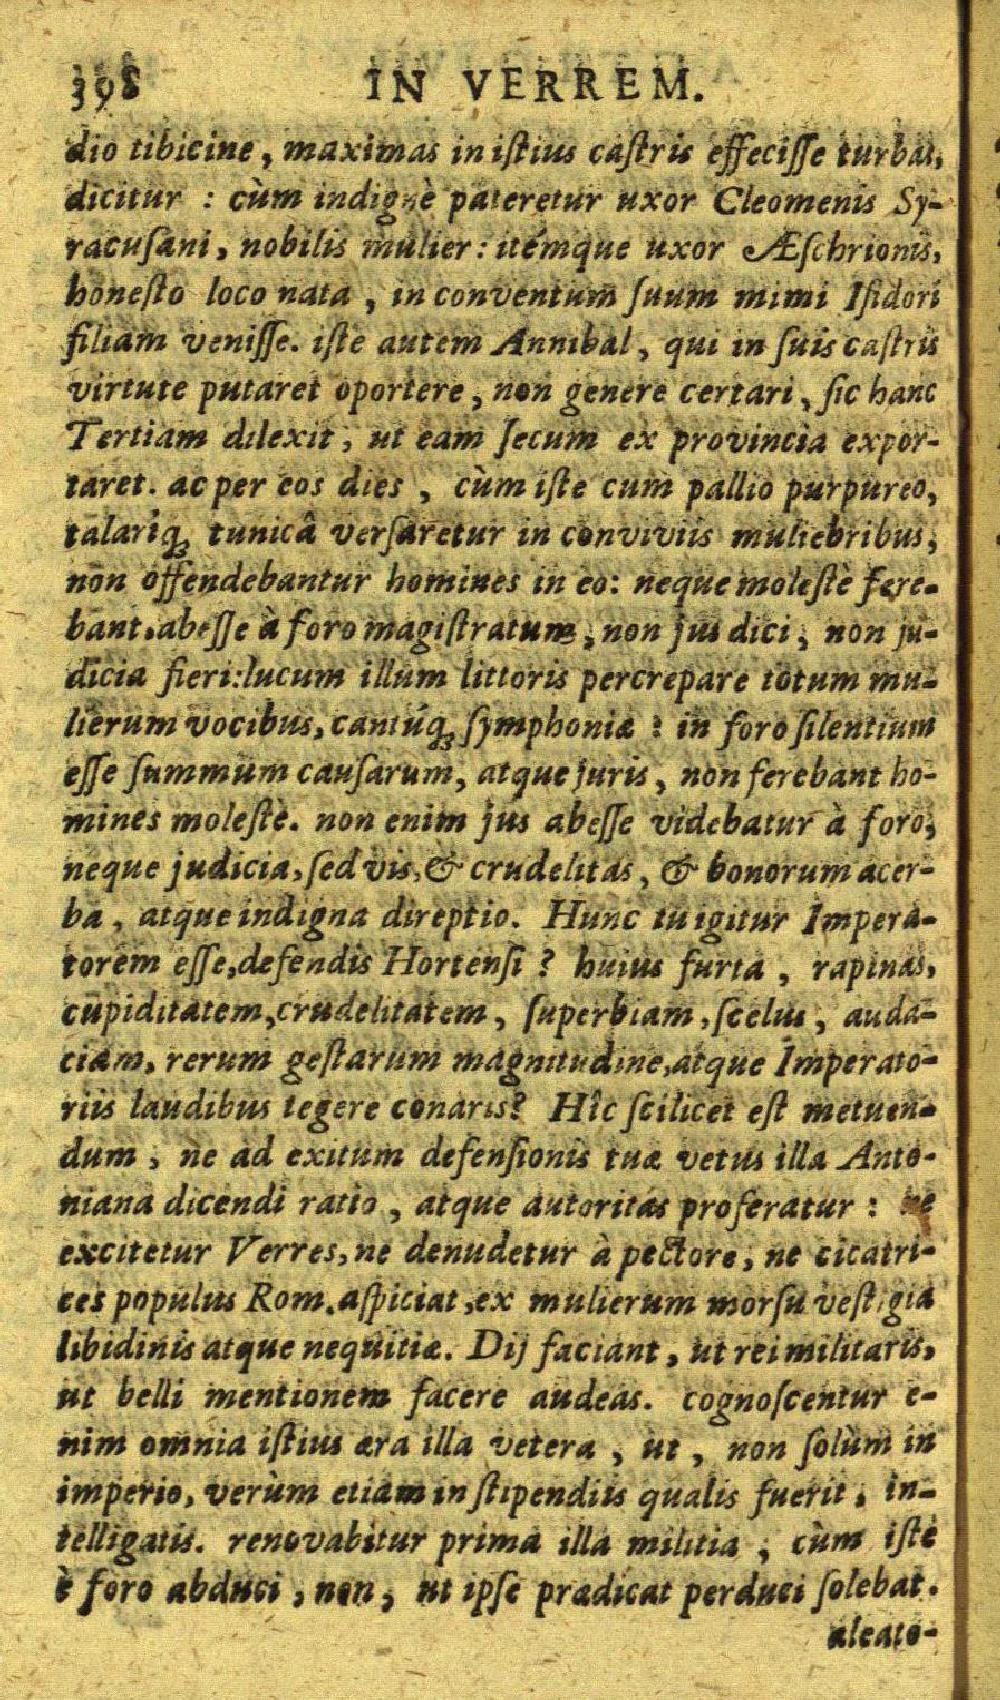 398 IN VERREM.
dio tibicine, maximas in iſtius caſtris effeciſſe turbas,
dicitur : cùm indignè pateretur uxor Cleomenis Sy-
racuſani, nobilis mulier: itémque uxor Æſchrionis,
honeſto loco nata, in conventum ſuum mimi Iſidori
filiam veniſſe. iſte autem Annibal, qui in ſuis caſtris
virtute putaret oportere, non genere certari, ſic hanc
Tertiam dilexit, ut eam ſecum ex provincia expor-
taret. ac per eos dies, cùm iſte cum pallio purpureo,
talariq; tunicâ verſaretur in conviviis muliebribus,
non offendebantur homines in eo: neque moleſtè fere-
bant, abeſſe à foro magiſtratum, non jus dici, non ju-
dicia fieri: lucum illum littoris percrepare totum mu-
lierum vocibus, cantúq; ſymphoniæ : in foro ſilentium
eſſe ſummum cauſarum, atque juris, non ferebant ho-
mines moleſtè. non enim jus abeſſe videbatur à foro,
neque judicia, ſed vis, & crudelitas, & bonorum acer-
ba, atque indigna direptio. Hunc tu igitur Impera-
torem eſſe, defendis Hortenſi ? huius furta, rapinas,
cupiditatem, crudelitatem, ſuperbiam, ſcelus, auda-
ciam, rerum geſtarum magnitudine, atque Imperato-
riis laudibus tegere conaris? Hîc ſcilicet eſt metuen-
dum, ne ad exitum defenſionis tuæ vetus illa Anto-
niana dicendi ratio, atque autoritas proferatur : ne
excitetur Verres, ne denudetur à pectore, ne cicatri-
ces populus Rom. aſpiciat, ex mulierum morſu veſtigia
libidinis atque nequitiæ. Dij faciant, ut rei militaris,
ut belli mentionem facere audeas. cognoſcentur e-
nim omnia iſtius æra illa vetera, ut, non ſolùm in
imperio, verùm etiam in ſtipendiis qualis fuerit, in-
telligatis. renovabitur prima illa militia, cùm iſte
è foro abduci, non, ut ipſe prædicat perduci ſolebat.
aleato-